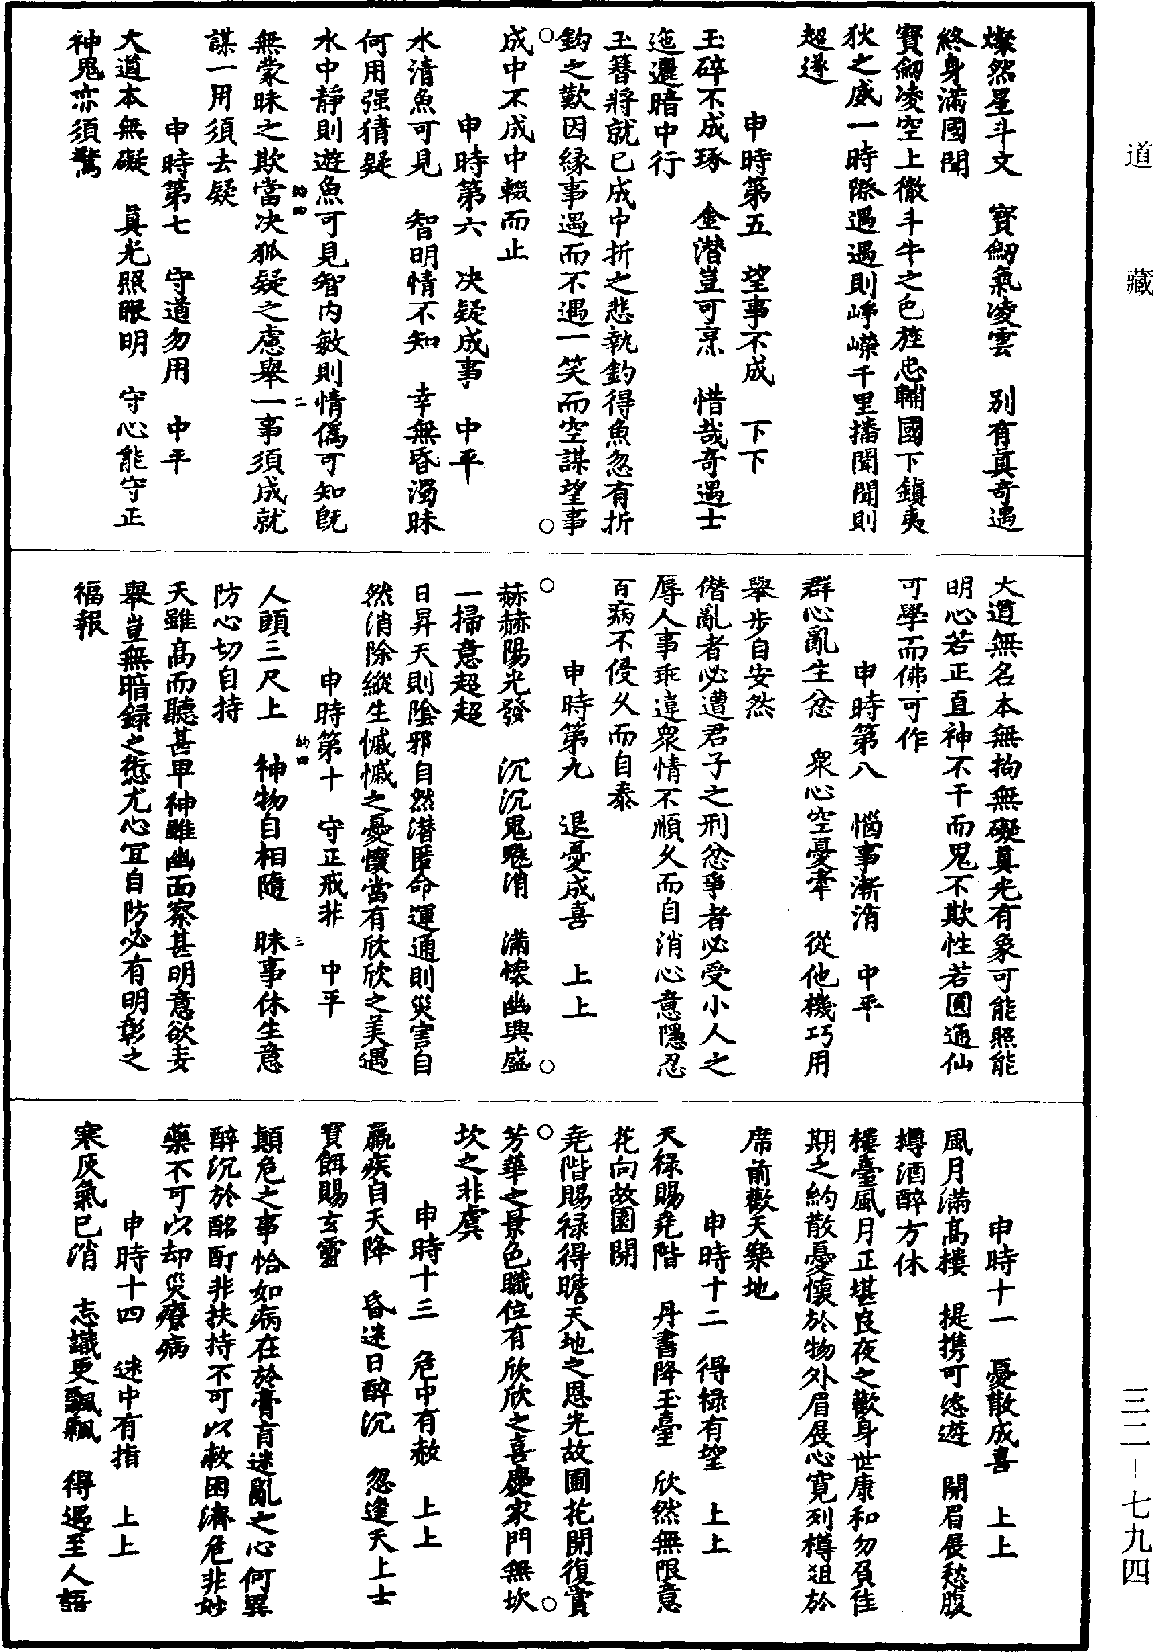 燦然星斗文　寶劒氣凌雲　別有眞奇遇
終身滿國聞
寶劒凌空上徹斗牛之色旌忠輔國下鎮夷
狄之威一時際遇遇則崢嶸千里播聞聞則
超遂
申時第五　望事不成　下下
玉碎不成琢　金潜豈可烹　惜哉奇遇士
迤邐暗中行
玉簪將就已成中折之悲執釣得魚忽有折
鈎之歎因緣事遇而不遇一笑而空謀望事
成中不成中輟而止
申時第六　决疑成事　中平
水清魚可見　智明情不知　幸無昏濁昧
何用强猜疑
水中靜則遊魚可見智内敏則情僞可知旣
無蒙昧之欺當决狐疑之慮舉一事須成就
謀一用須去疑
申時第七　守道勿用　中平
大道本無礙　眞光照眼明　守心能守正
神鬼亦須驚
大道無名本無拘無礙眞光有象可能照能
明心若正直神不干而鬼不欺性若圓通仙
可學而佛可作
申時第八　惱事漸消　中平
群心亂生忿　衆心空憂牽　從他機巧用
舉步自安然
僭亂者必遭君子之刑忿爭者必受小人之
辱人事乖違衆情不順久而自消心意隱忍
百病不侵久而自泰
申時第九　退憂成喜　上上
赫赫陽光發　沉沉鬼魅消　滿懷幽興盛
一掃意超超
日昇天則陰邪自然潜匿命運通則災害自
然消除縱生慽慽之憂懷當有欣欣之美遇
申時第十　守正戒非　中平
人頭三尺上　神物自相隨　昧事休生意
防心切自持
天雖高而聽甚卑神雖幽而察甚明意欲妄
舉豈無暗録之愆尤心宜自防必有明彰之
福報
申時十一　憂散成喜　上上
風月滿高樓　提携可恣遊　開眉展愁腹
樽酒醉方休
樓臺風月正堪良夜之歡身世康和勿負佳
期之約散憂懷於物外眉展心寬列樽俎於
席前歡天樂地
申時十二　得禄有望　上上
天禄賜堯階　丹書降玉臺　欣然無限意
花向故園開
堯階賜禄得瞻天地之恩光故圃花開復賞
芳華之景色職位有欣欣之喜慶家門無坎
坎之非虞
申時十三　危中有救　上上
羸疾自天降　昏迷日醉沉　忽逢天上士
寶餌賜玄靈
顛危之事恰如病在於膏肓迷亂之心何異
醉沉於酩酊非扶持不可以救困濟危非妙
藥不可以却災療病
申時十四　迷中有指　上上
寒灰氣已消　志識更飄飄　得遇至人語
道藏
三二－七九四